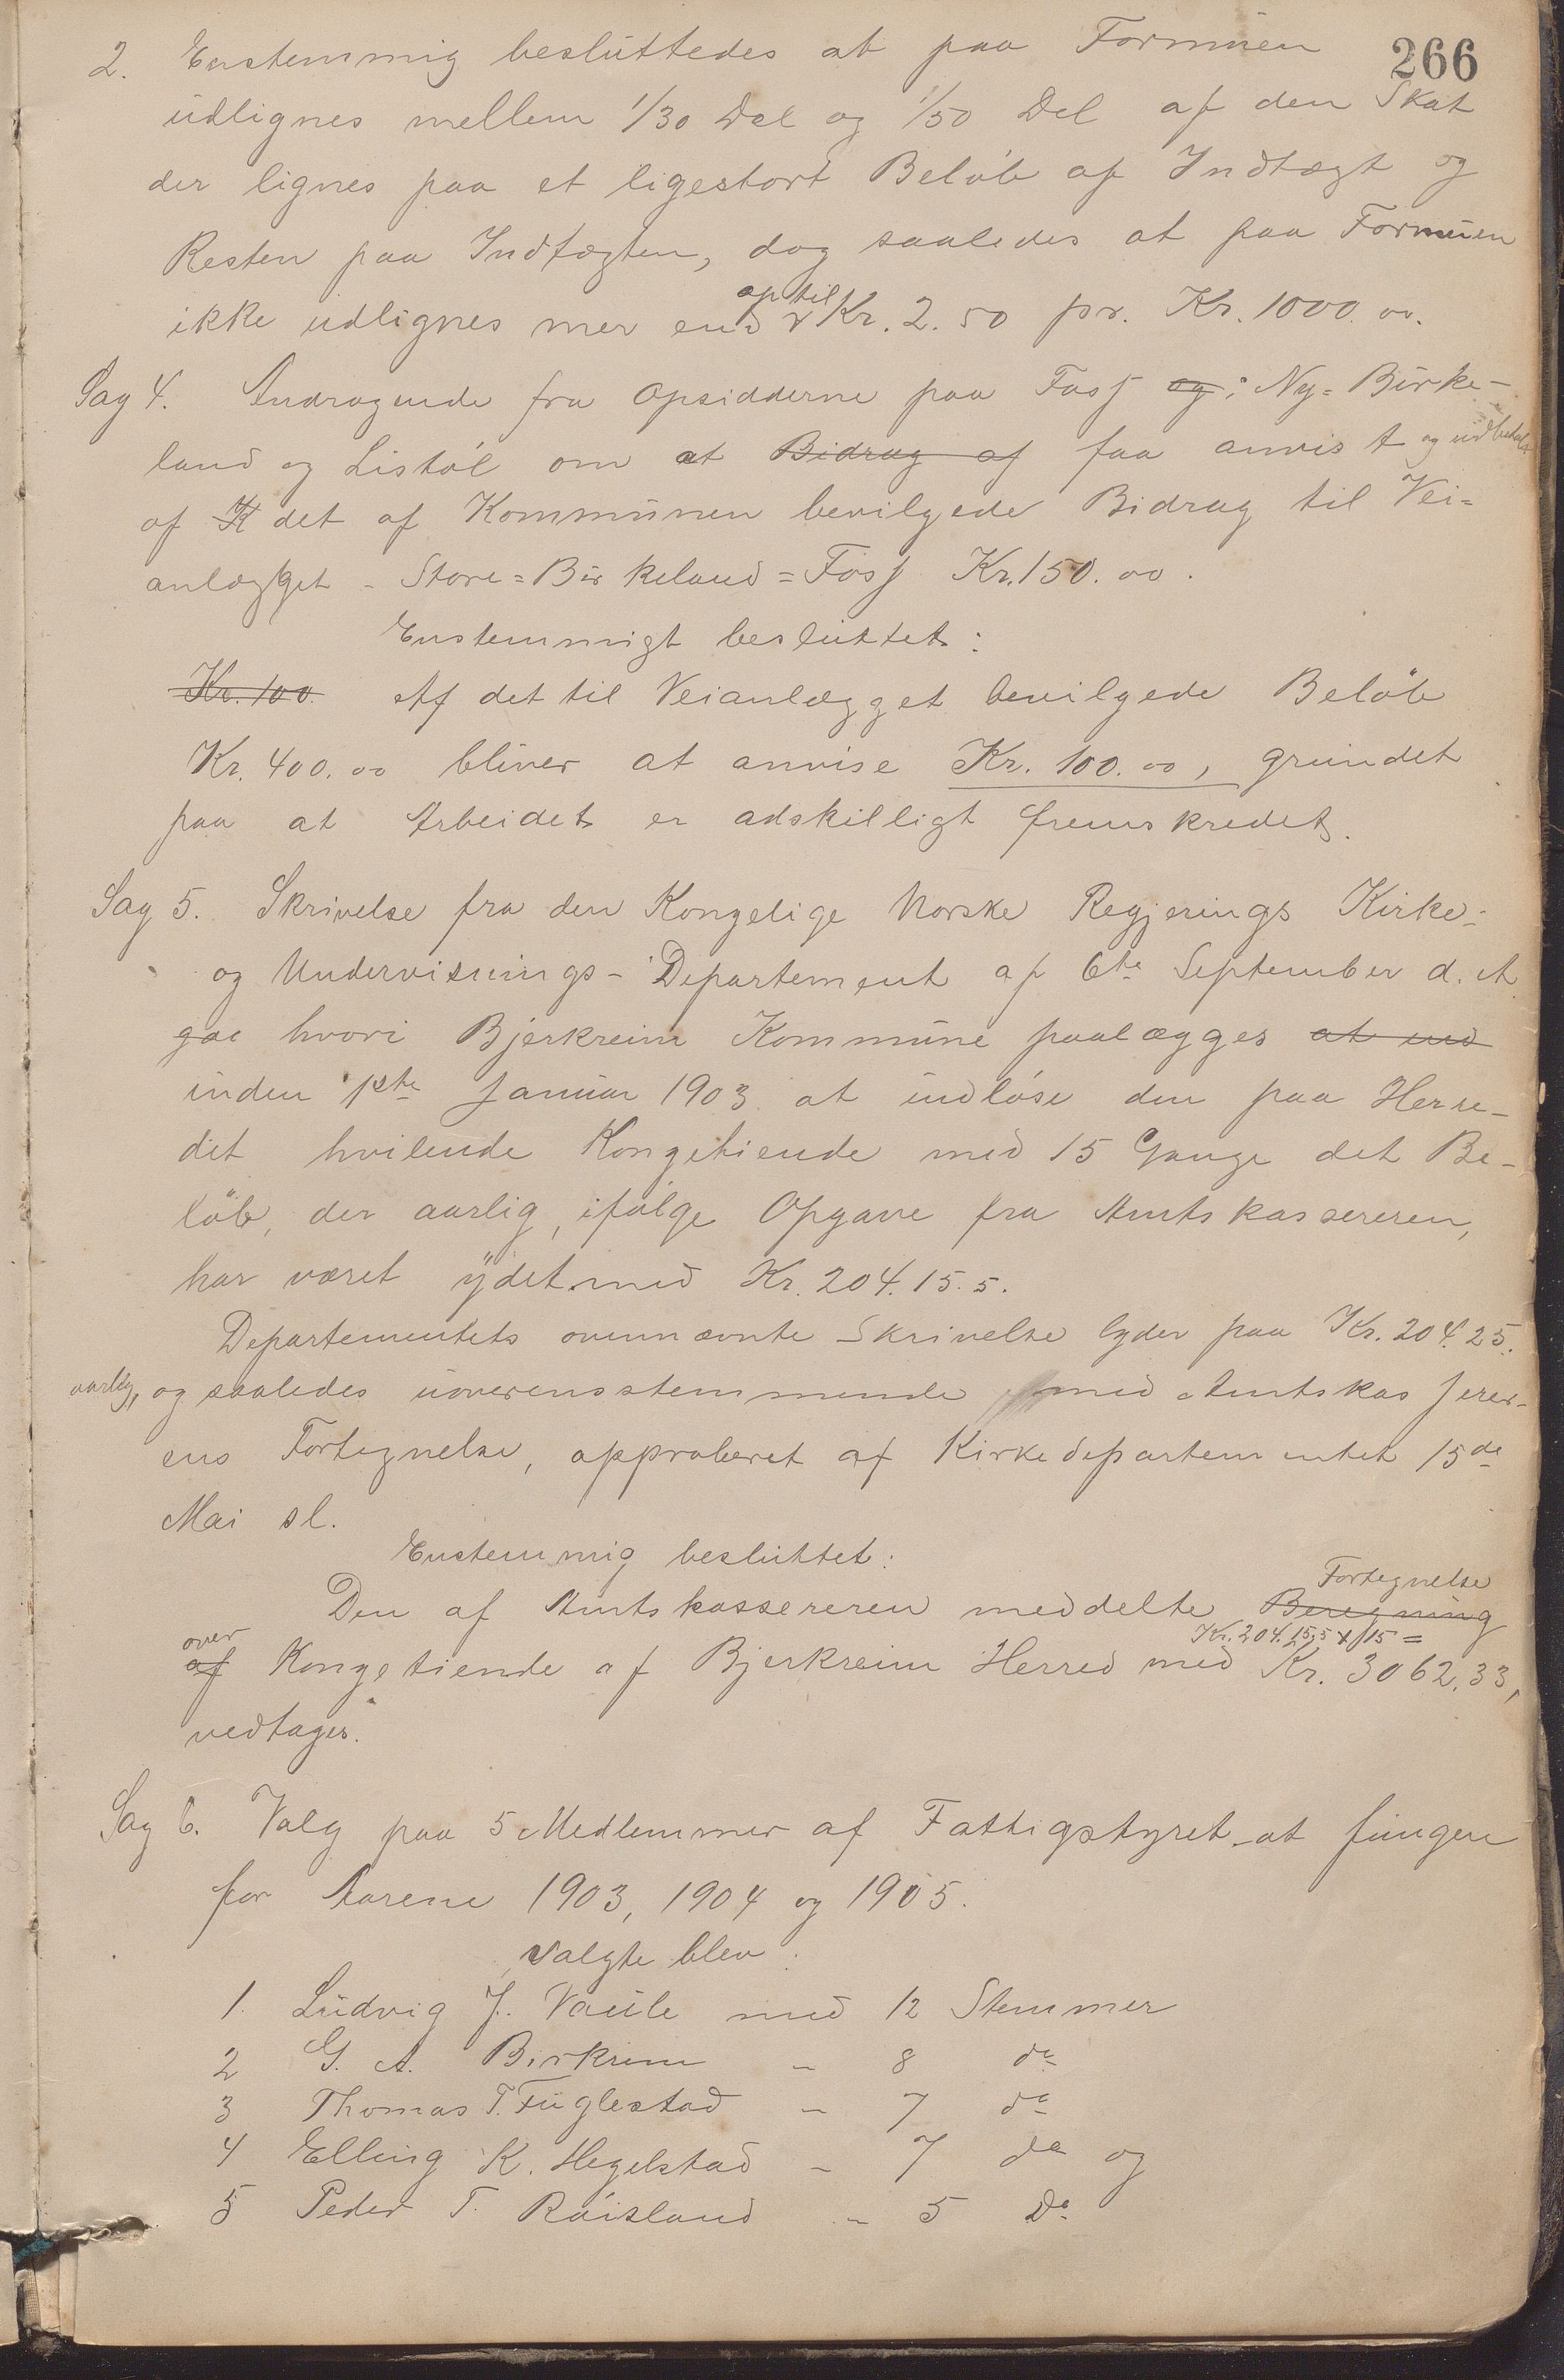 266
2. Enstemmig besluttedes at paa Formuen
udlignes mellem 1/30 Del og 1/50 Del af den Skat
der lignes paa et ligestort Beløb af Indtægt og
Resten paa Indtægten, dog saaledes at paa Formuen
ikke udlignes mer end op til Kr. 2.50 pr. Kr. 1000.00.
Sag 4. Andragende fra Opsidderne paa Fosf og: Ny-Birke-
land og Listøl om at Bidrag af faa anvist og udbetalt
af K det af Kommunen bevilgede Bidrag til Vei=
anlægget - Store=Birkeland=Fosf Kr. 150.00.
Enstemmigt besluttet:
Kr. 100. Af det til Veianlægget bevilgede Beløb
Kr. 400.00 bliver at anvise Kr. 100.00, grundet
paa at Arbeidet er adskilligt fremskredet.
Sag 5. Skrivelse fra den Kongelige Norske Regjerings Kirke-
og Undervisnings-Departement af 6te September d. A.
gae hvori Bjerkreim Kommune paalægges at ind
inden 1ste Januar 1903 at indløse den paa Herre-
det hvilende Kongetiende med 15 Gange det Be-
løb, der aarlig, ifølge Opgave fra Amtskassereren,
har været ydet med Kr. 204.15.5.
Departementets ovennævnte Skrivelse lyder paa Kr. 204.25.
aarlig, og saaledes uoverensstemmende med Amtskasserer-
ens Fortegnelse, approberet af Kirkedepartementet 15de
Mai sl.
Enstemmig besluttet:
Fortegnelse
Den af Amtskassereren meddelte Beregning
over Kr. 204.15,5 x 15 =
af Kongetiende af Bjerkreim Herred med Kr. 3062.33,
vedtages."
Sag 6. Valg paa 5 Medlemmer af Fattigstyret at fungere
for Aarene 1903, 1904 og 1905.
Valgte blev:
1. Ludvig J. Vaule med 12 Stemmer
2 G. A. Birkrem - 8 do
3 Thomas T. Fuglestad - 7 do
4 Elling K. Hegelstad - 7 do og
5 Peder T. Røisland - 5 Do